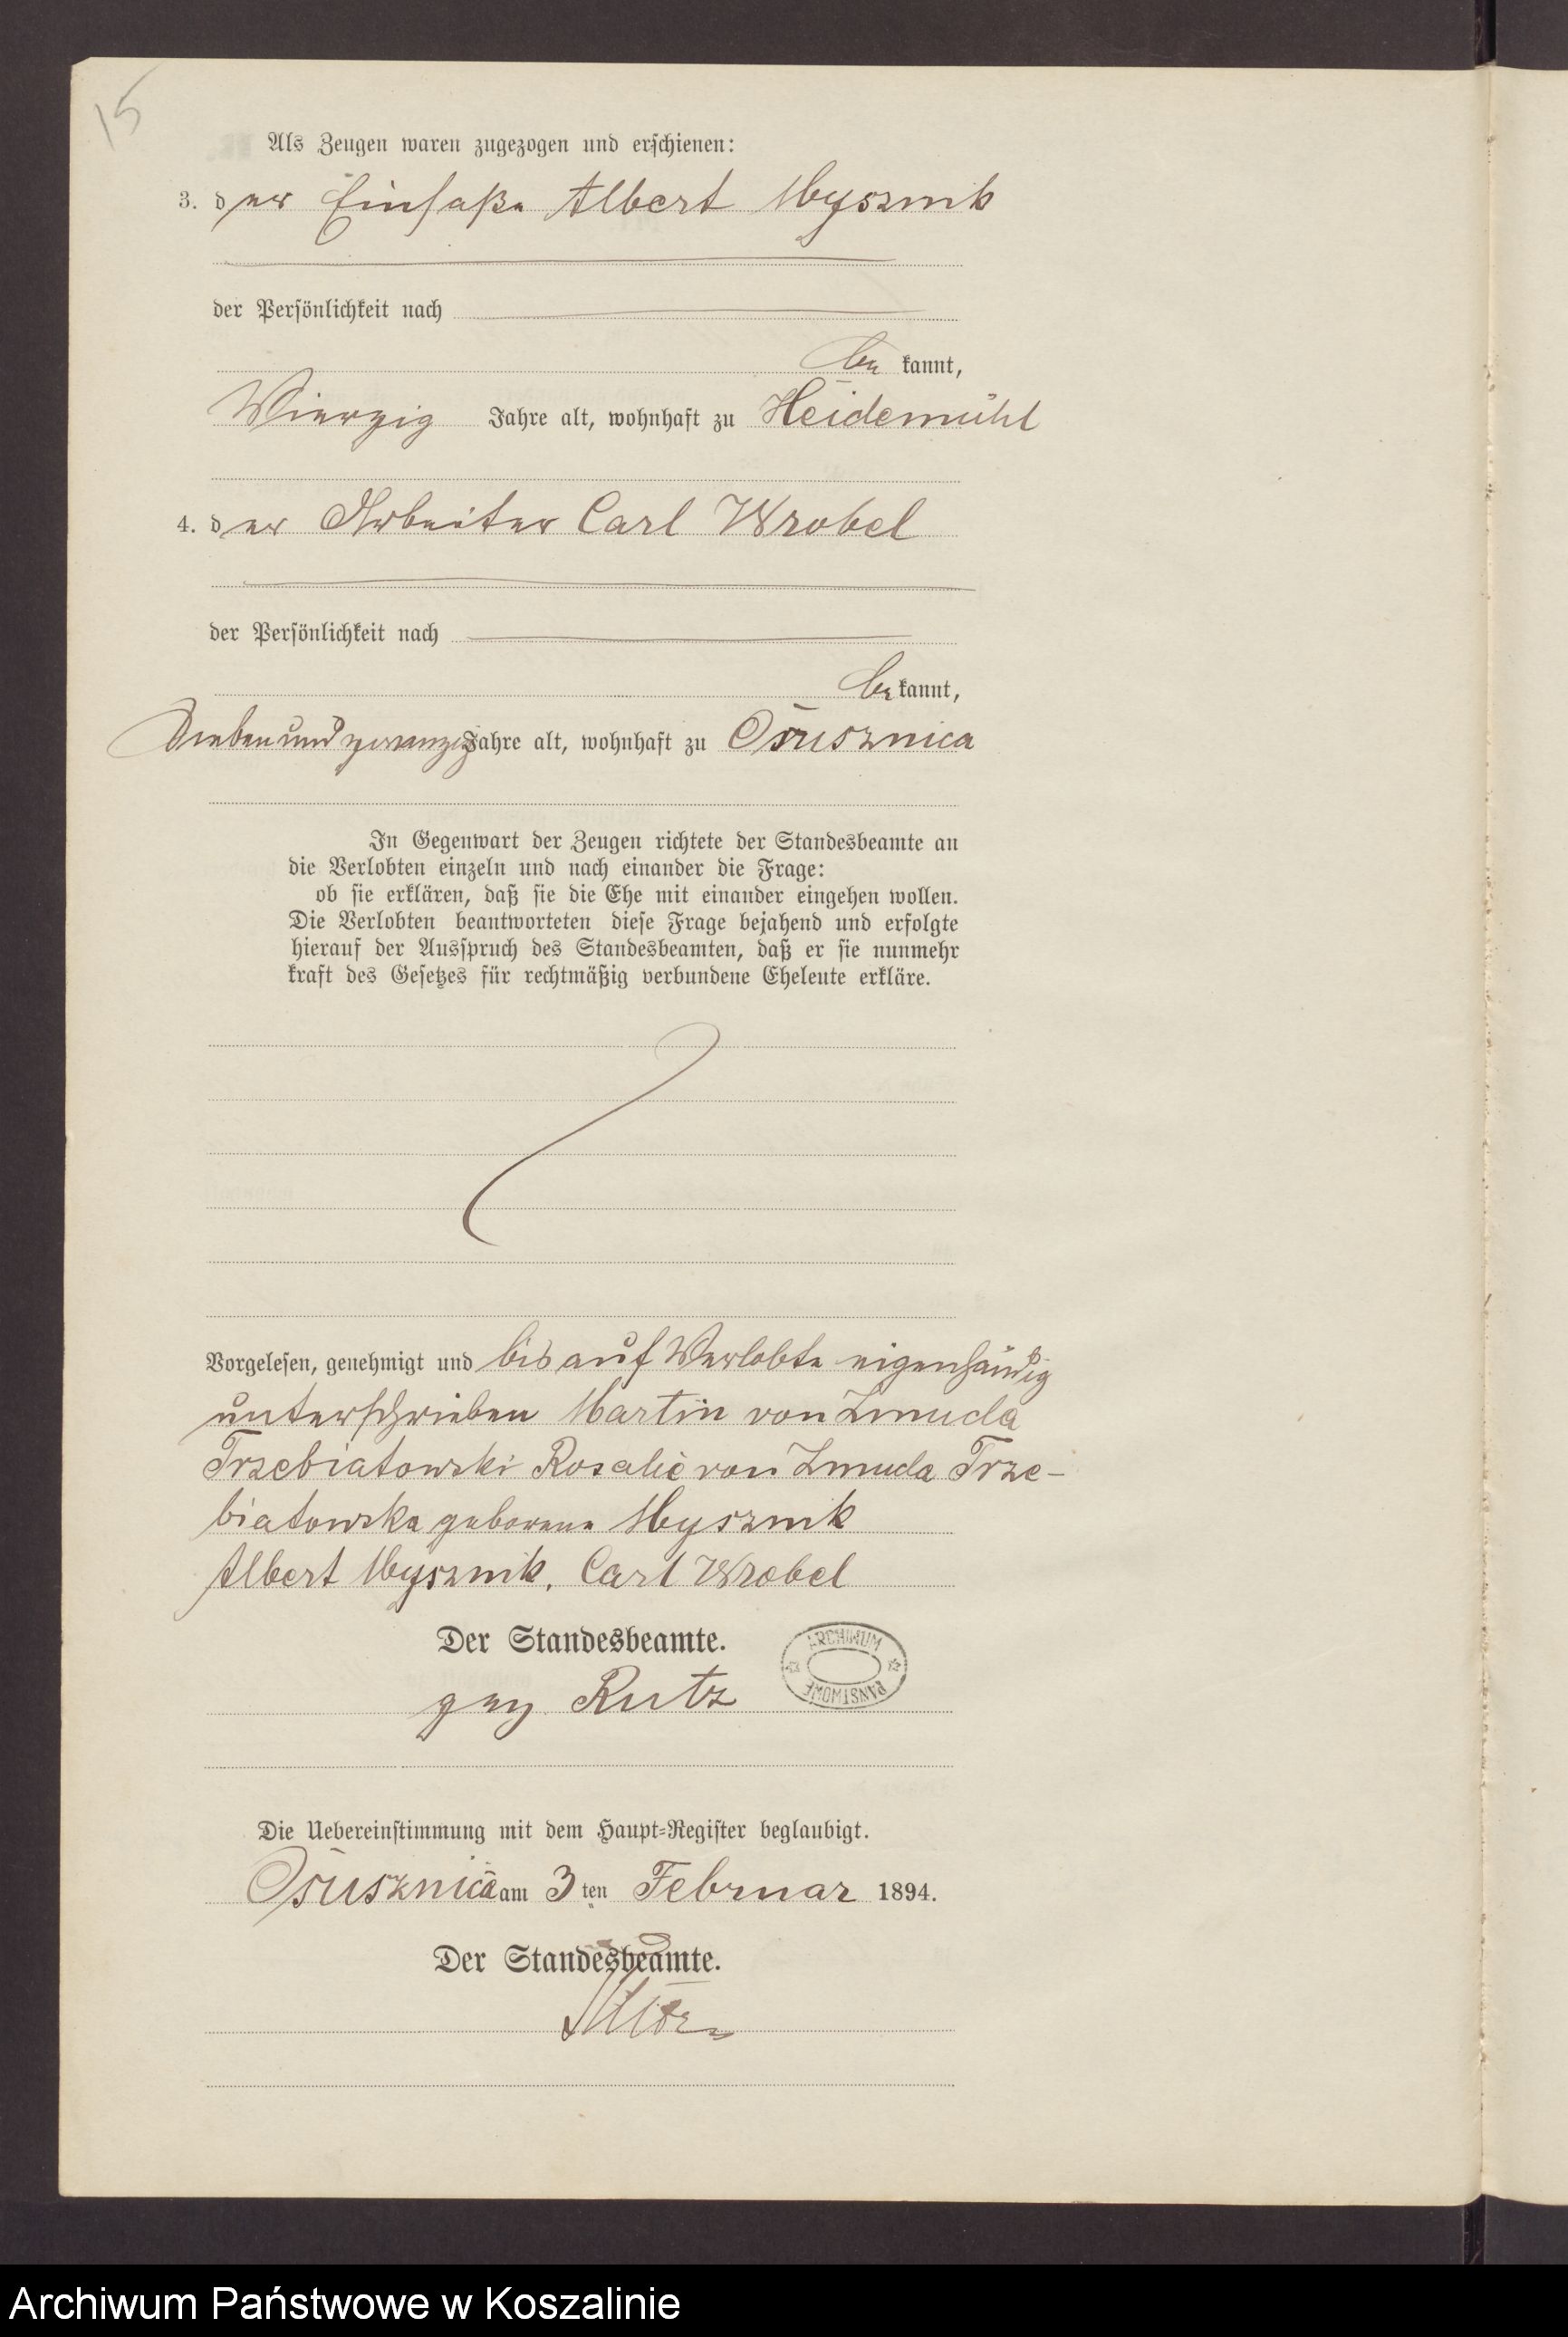 15
Als Zeugen waren zugezogen und erschienen:
3. der Einsaße Albert Mysznik
der Persönlichkeit nach
be kannt,
Vierzig Jahre alt, wohnhaft zu Heidemühl
4. der Arbeiter Carl Wrobel
der Persönlichkeit nach
be kannt,
Siebenundzwanzig Jahre alt, wohnhaft zu Osusznica
In Gegenwart der Zeugen richtete der Standesbeamte an
die Verlobten einzeln und nach einander die Frage:
ob sie erklären, daß sie die Ehe mit einander eingehen wollen.
Die Verlobten beantworteten diese Frage bejahend und erfolgte
hierauf der Ausspruch des Standesbeamten, daß er sie nunmehr
kraft des Gesetzes für rechtmäßig verbundene Eheleute erkläre.
Vorgelesen, genehmigt und bis auf Verlobte eigenhändig
unterschrieben Martin von Zmuda
Trzebiatowski Rosalie von Zmuda Trze-
biatowska geborene Mysznik
Albert Mysznik. Carl Wrobel
Der Standesbeamte.
ARCHIWUM
PAŃSTWOWE
gez. Rutz
Die Uebereinstimmung mit dem Haupt-Register beglaubigt.
Osusznica am 3 ten Februar 1894.
Der Standesbeamte.
Archiwum Państwowe w Koszalinie